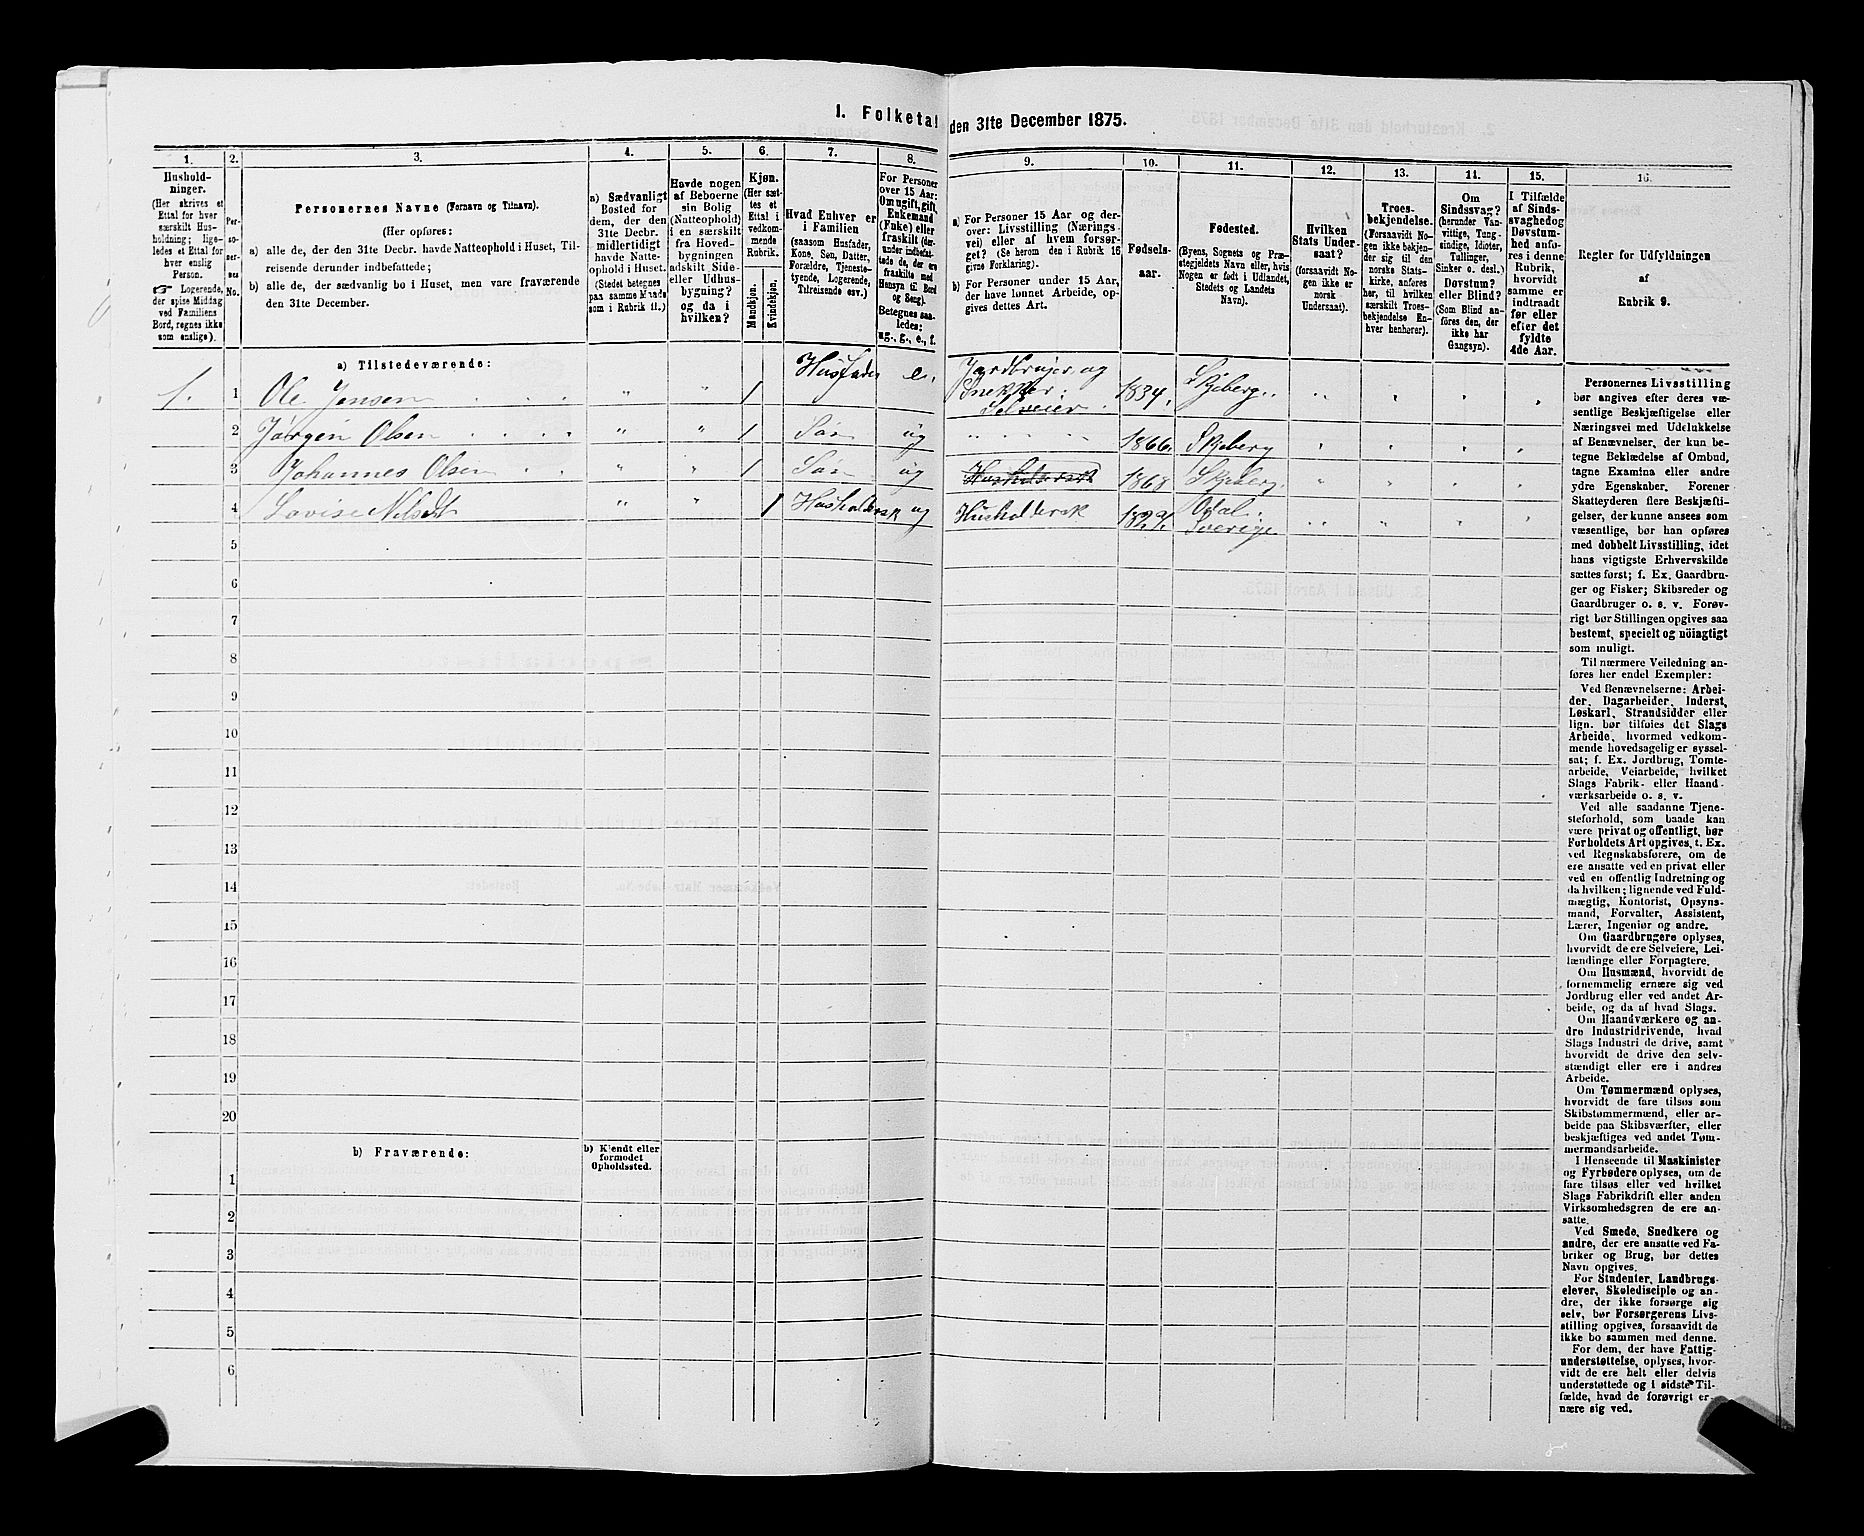 1. Folketal den 31te December 1875.
1.
2.
3.
4.
5.
6.
7.
8.
9.
10.
11.
12.
13.
14.
15.
16.
Hushold-
ninger.
(Her skrives et
Ettal for hver
særskilt Hus-
holdning; lige-
ledes et Ettal for
hver enslig
Person.
☞ Logerende,
der spise Middag
ved Familiens
Bord, regnes ikke
som enslige).
Per-
so-
ner-
nes
No.
Personernes Navne (Fornavn og Tilnavn).
(Her opføres:
a) alle de, der den 31te Decbr. havde Natteophold i Huset, Til-
reisende derunder indbefattede;
b) alle de, der sædvanlig bo i Huset, men vare fraværende
den 31te December.
a) Sædvanligt
Bosted for
dem, der den
31te Decbr.
midlertidigt
havde Natte-
ophold i Huset.
(Stedet betegnes
paa samme Maade
som i Rubrik 11.)
Havde nogen
af Beboerne
sin Bolig
(Natteophold)
i en særskilt
fra Hoved-
bygningen
adskilt Side-
eller Udhus-
bygning?
og da i
hvilken?
Kjøn.
(Her sæt-
tes et
Ettal i
vedkom-
mende
Rubrik.
Mandkjøn.
Kvindekjøn.
Hvad Enhver er
i Familien
(saasom Husfader,
Kone, Søn, Datter,
Forældre, Tjeneste-
tyende, Logerende,
Tilreisende osv.)
For Personer
over 15 Aar:
Om ugift, gift,
Enkemand
(Enke) eller
fraskilt (der-
under indbefat-
tede de, der ere
fraskilte med
Hensyn til Bord
og Seng).
Betegnes saa-
ledes:
ug., g., e., f.
a) For Personer 15 Aar og der-
over: Livsstilling (Nærings-
vei) eller af hvem forsør-
get? (Se herom den i Rubrik 16
givne Forklaring).
b) For Personer under 15 Aar,
der have lønnet Arbeide, op-
gives dettes Art.
Fødsels-
aar.
Fødested.
(Byens, Sognets og Præ-
stegjeldets Navn eller, hvis
Nogen er født i Udlandet,
Stedets og Landets
Navn).
Hvilken
Stats Under-
saat?
(forsaavidt No-
gen ikke er
norsk
Undersaat).
Troes-
bekjendelse.
(Forsaavidt No-
gen ikke bekjen-
der sig til den
norske Stats-
kirke, anføres
her, til hvilken
særskilt Troes-
bekjendelse En-
hver henhører).
Om
Sindssvag?
(herunder Van-
vittige, Tung-
sindige, Idioter,
Tullinger,
Sinker o. desl.)
Døvstum?
eller Blind?
(Som Blind an-
føres den, der
ikke har
Gangsyn).
I Tilfælde
af Sinds-
svaghed og
Døvstum-
hed anfø-
res i denne
Rubrik,
hvorvidt
samme er
indtraadt
før eller
efter det
fyldte
4de Aar.
Regler for Udfyldningen
af
Rubrik 9.
a) Tilstedeværende:
1. 1 Ole Jensen " " 1 Husfader e. Jordbruger og Snekker. Selveier. 1834. Skjeberg.
2 Jørgen Olsen " " 1 Søn ug " " " " 1866. Skjeberg
3 Johannes Olsen " " 1 Søn ug 1868 Skjeberg.
4 Lovise Nilsdt " " 1 Husholdersk ug Husholdersk Sverige
5
6
7
8
9
10
11
12
13
14
15
16
17
18
19
20
b) Fraværende:
b) Kjendt eller
formodet
Opholdssted.
1
2
3
4
5
6
Personernes Livsstilling
bør angives efter deres væ-
sentlige Beskjæftigelse eller
Næringsvei med Udelukkelse
af Benævnelser, der kun be-
tegne Beklædelse af Ombud,
tagne Examina eller andre
ydre Egenskaber. Forener
Skatteyderen flere Beskjæfti-
gelser, der kunne ansees som
væsentlige, bør han opføres
med dobbelt Livsstilling, idet
hans vigtigste Erhvervskilde
sættes først; f. Ex. Gaardbru-
ger og Fisker; Skibsreder og
Gaardbruger o. s. v. Forøv-
rigt bør Stillingen opgives saa
bestemt, specielt og nöiagtigt
som muligt.
Til nærmere Veiledning an-
føres her endel Exempler:
Ved Benævnelserne: Arbei-
der, Dagarbeider, Inderst,
Løskarl, Strandsidder eller
lign. bør tilføies det Slags
Arbeide, hvormed vedkom-
mende hovedsagelig er syssel-
sat; f. Ex. Jordbrug, Tomte-
arbeide, Veiarbeide, hvilket
Slags Fabrik- eller Haand-
værksarbeide o. s. v.
Ved alle saadanne Tjene-
steforhold, som baade kan
være privat og offentligt, bør
Forholdets Art opgives, t. Ex.
ved Regnskabsførere, om de
ere ansatte ved en privat eller
ved en offentlig Indretning og
da hvilken; lignende ved Fuld-
mægtig, Kontorist, Opsyns-
mand, Forvalter, Assistent,
Lærer, Ingeniør og andre.
Om Gaardbrugere oplyses,
hvorvidt de ere Selveiere, Lei-
lændinge eller Forpagtere.
Om Husmænd, hvorvidt de
fornemmelig ernære sig ved
Jordbrug eller ved andet Ar-
beide, og da af hvad Slags.
Om Haandværkere og an-
dre Industridrivende, hvad
Slags Industri de drive, samt
hvorvidt de drive den selv-
stændigt eller ere i andres
Arbeide.
Om Tømmermænd oplyses,
hvorvidt de fare tilsøs som
Skibstømmermænd, eller ar-
beide paa Skibsværfter, eller
beskjæftiges ved andet Tøm-
mermandsarbeide.
I Henseende til Maskinister
og Fyrbødere oplyses, om de
fare tilsøs eller ved hvilket
Slags Fabrikdrift eller anden
Virksomhedsgren de ere an-
satte.
Ved Smede, Snedkere og
andre, der ere ansatte ved Fa-
briker og Brug, bør dettes
Navn opgives.
For Studenter, Landbrugs-
elever, Skoledisciple og an-
dre, der ikke forsørge sig
selv, bør Forsørgerens Livs-
stilling opgives, forsaavidt de
ikke bo sammen med denne.
For dem, der have Fattig-
understøttelse, oplyses, hvor-
vidt de ere helt eller delvis
understøttede og i sidste Til-
fælde, hvad de forøvrigt er-
nære sig ved.